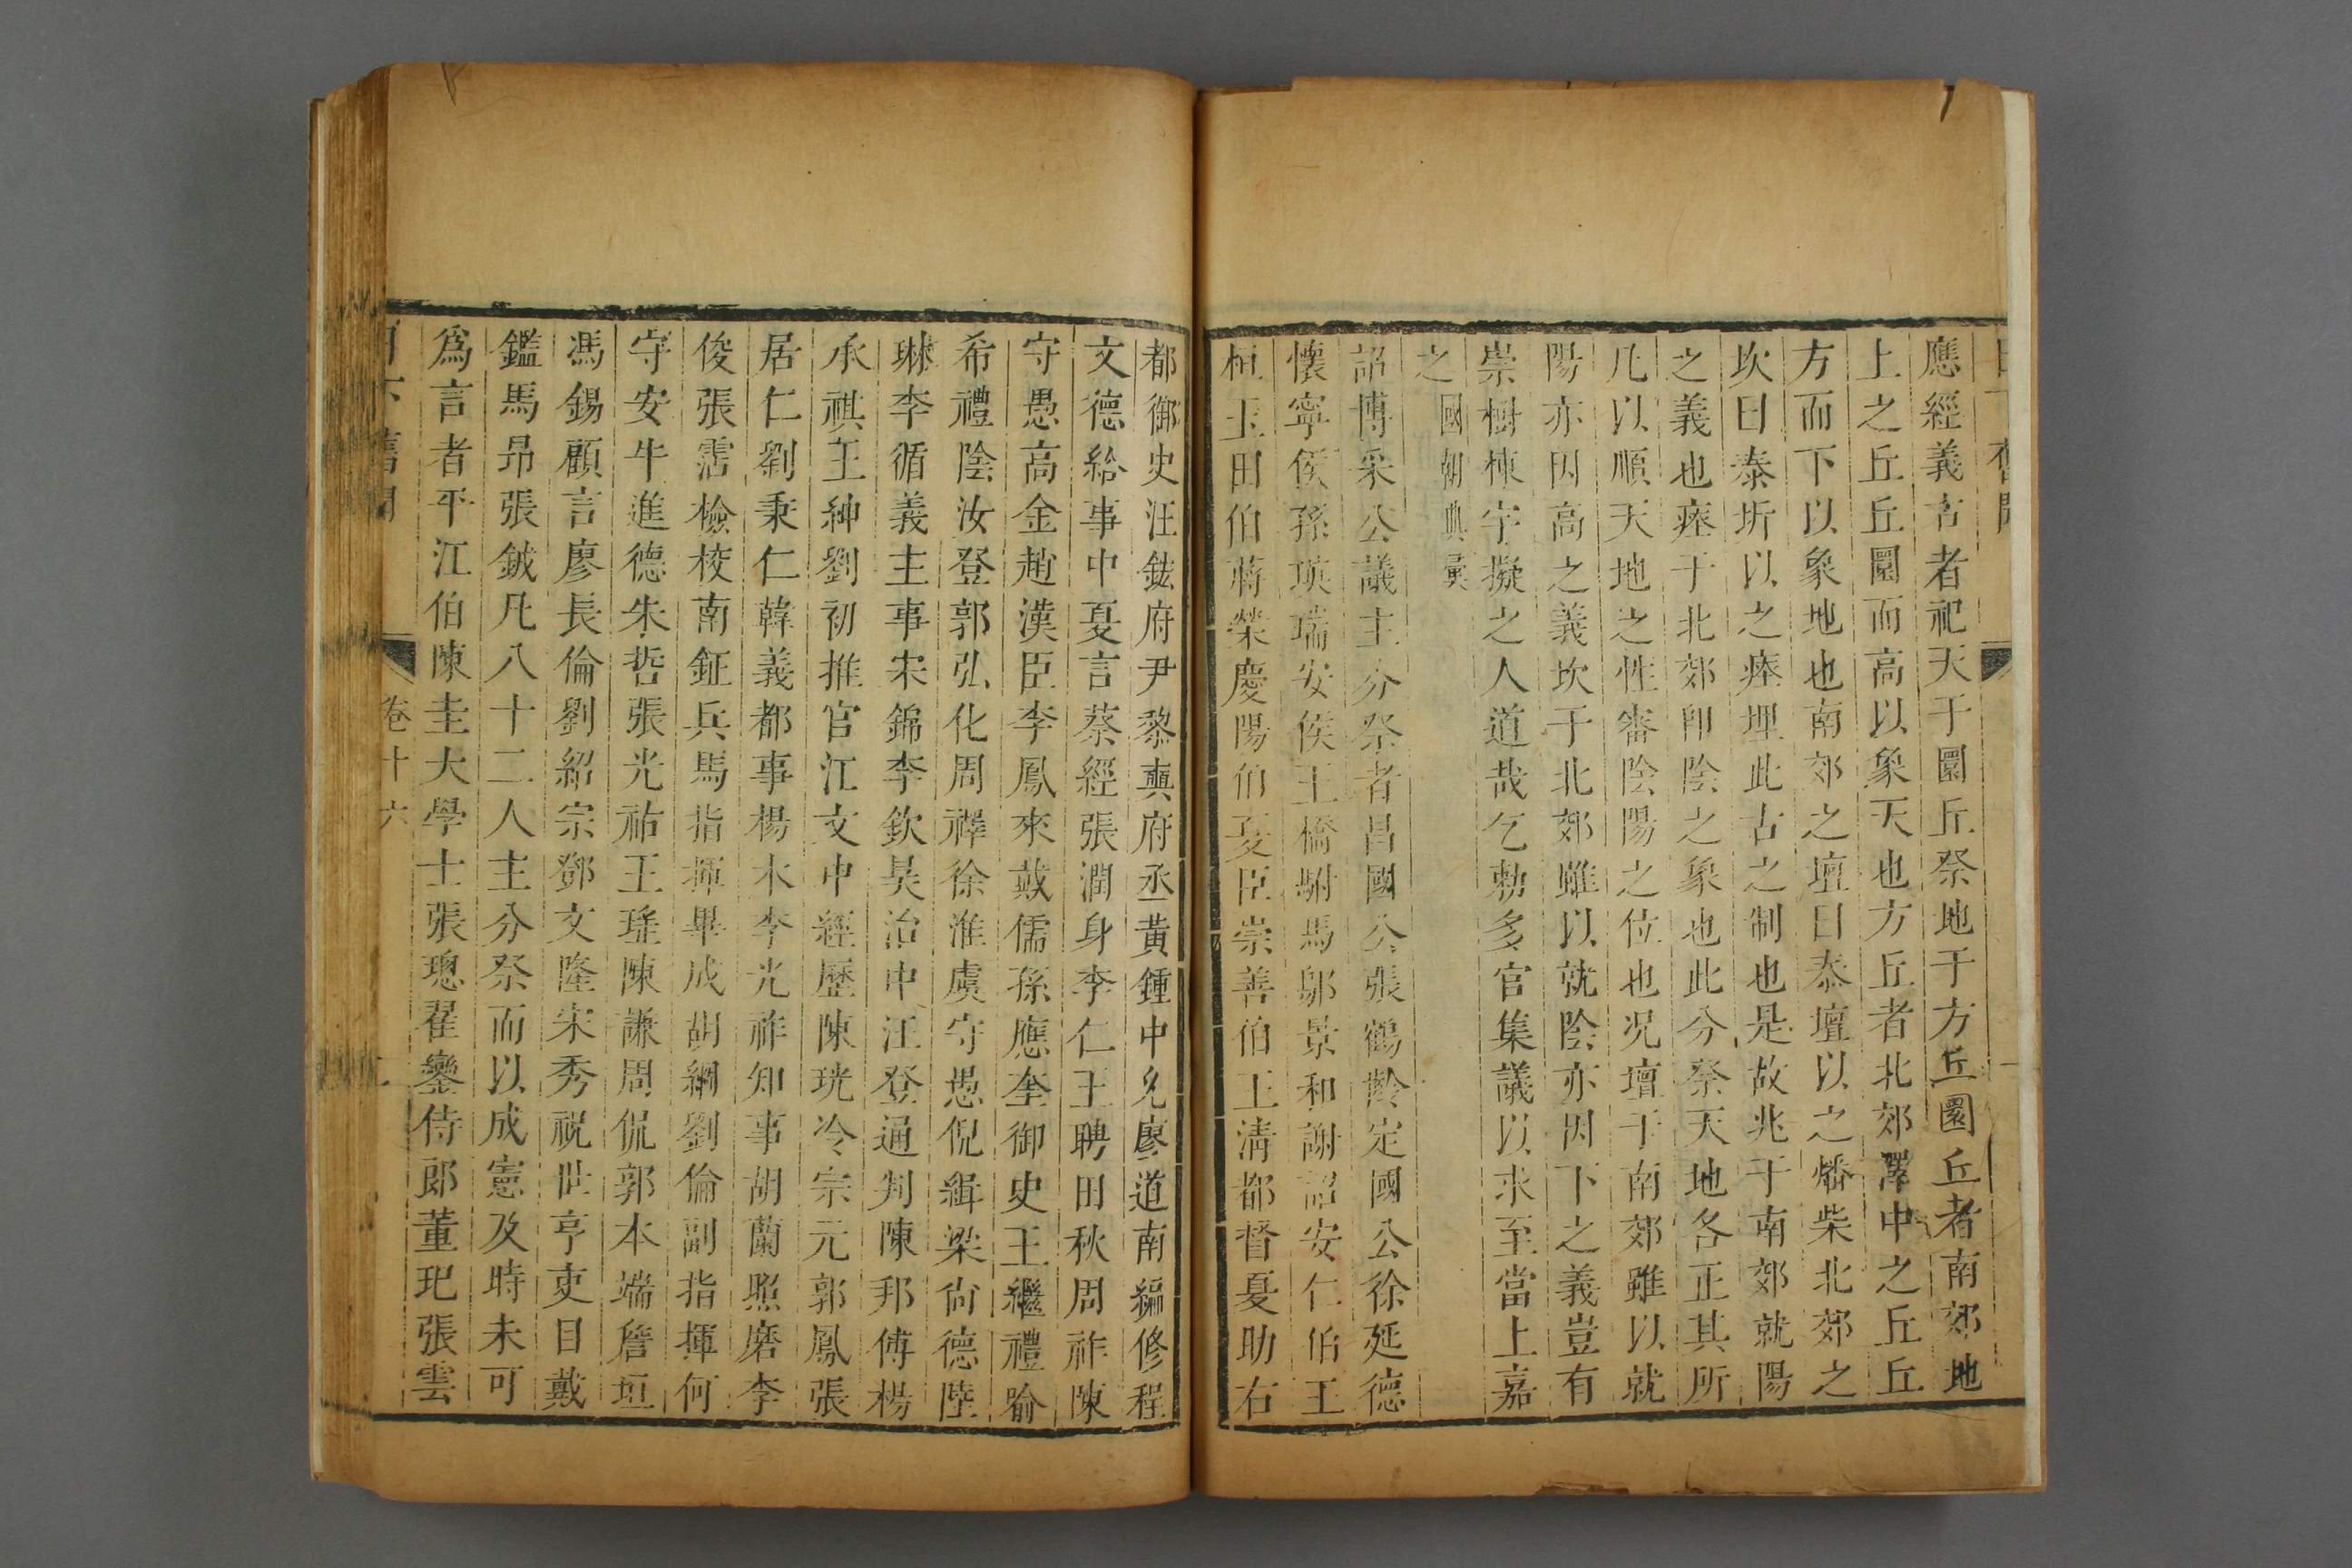 日下舊聞
應經義古者祀天于圜丘祭地于方丘圜丘者南郊地
上之丘丘圜而高以象天也方丘者北郊澤中之丘丘
方而下以象地也南郊之壇曰泰壇以之燔柴北郊之
坎曰泰圻以之瘞埋此古之制也是故兆于南郊就陽
之義也瘞于北郊即陰之象也此分祭天地各正其所
凡以順天地之性審陰陽之位也况壇于南郊雖以就
陽亦因高之義坎于北郊雖以就陰亦因下之義豈有
崇樹棟宇擬之人道哉乞勅多官集議以求至當上嘉
之國朝典彙
詔博采公議主分祭者昌國公張鶴齡定國公徐延德
懷寧侯孫瑛瑞安侯王橋駙馬鄔景和謝詔安仁伯王
桓玉田伯蔣榮慶陽伯夏臣崇善伯王清都督夏助右
都御史汪鋐府尹黎奭府丞黃鍾中允廖道南編修程
文德給事中夏言蔡經張潤身李仁王聘田秋周祚陳
守愚高金趙漢臣李鳳來戴儒孫應奎御史王繼禮喻
希禮陰汝登郭弘化周襗徐淮虞守愚倪緝梁尙德陸
琳李循義主事宋錦李欽吴治中汪登通判陳邦傅楊
承祺王紳劉初推官江文中經歷陳珖冷宗元郭鳳張
居仁劉秉仁韓義都事楊木李光祚知事胡蘭照磨李
俊張霑檢校南鉦兵馬指揮畢成胡綱劉倫副指揮何
守安牛進德朱哲張光祐王瑾陳謙周侃郭本端詹垣
馮錫顧言廖長倫劉紹宗鄧文隆宋秀祝世亨吏目戴
鑑馬昂張鉞凡八十二人主分祭而以成憲及時未可
爲言者平江伯陳圭大學士張璁翟鑾侍郎董玘張雲
日下舊聞 卷十六 二